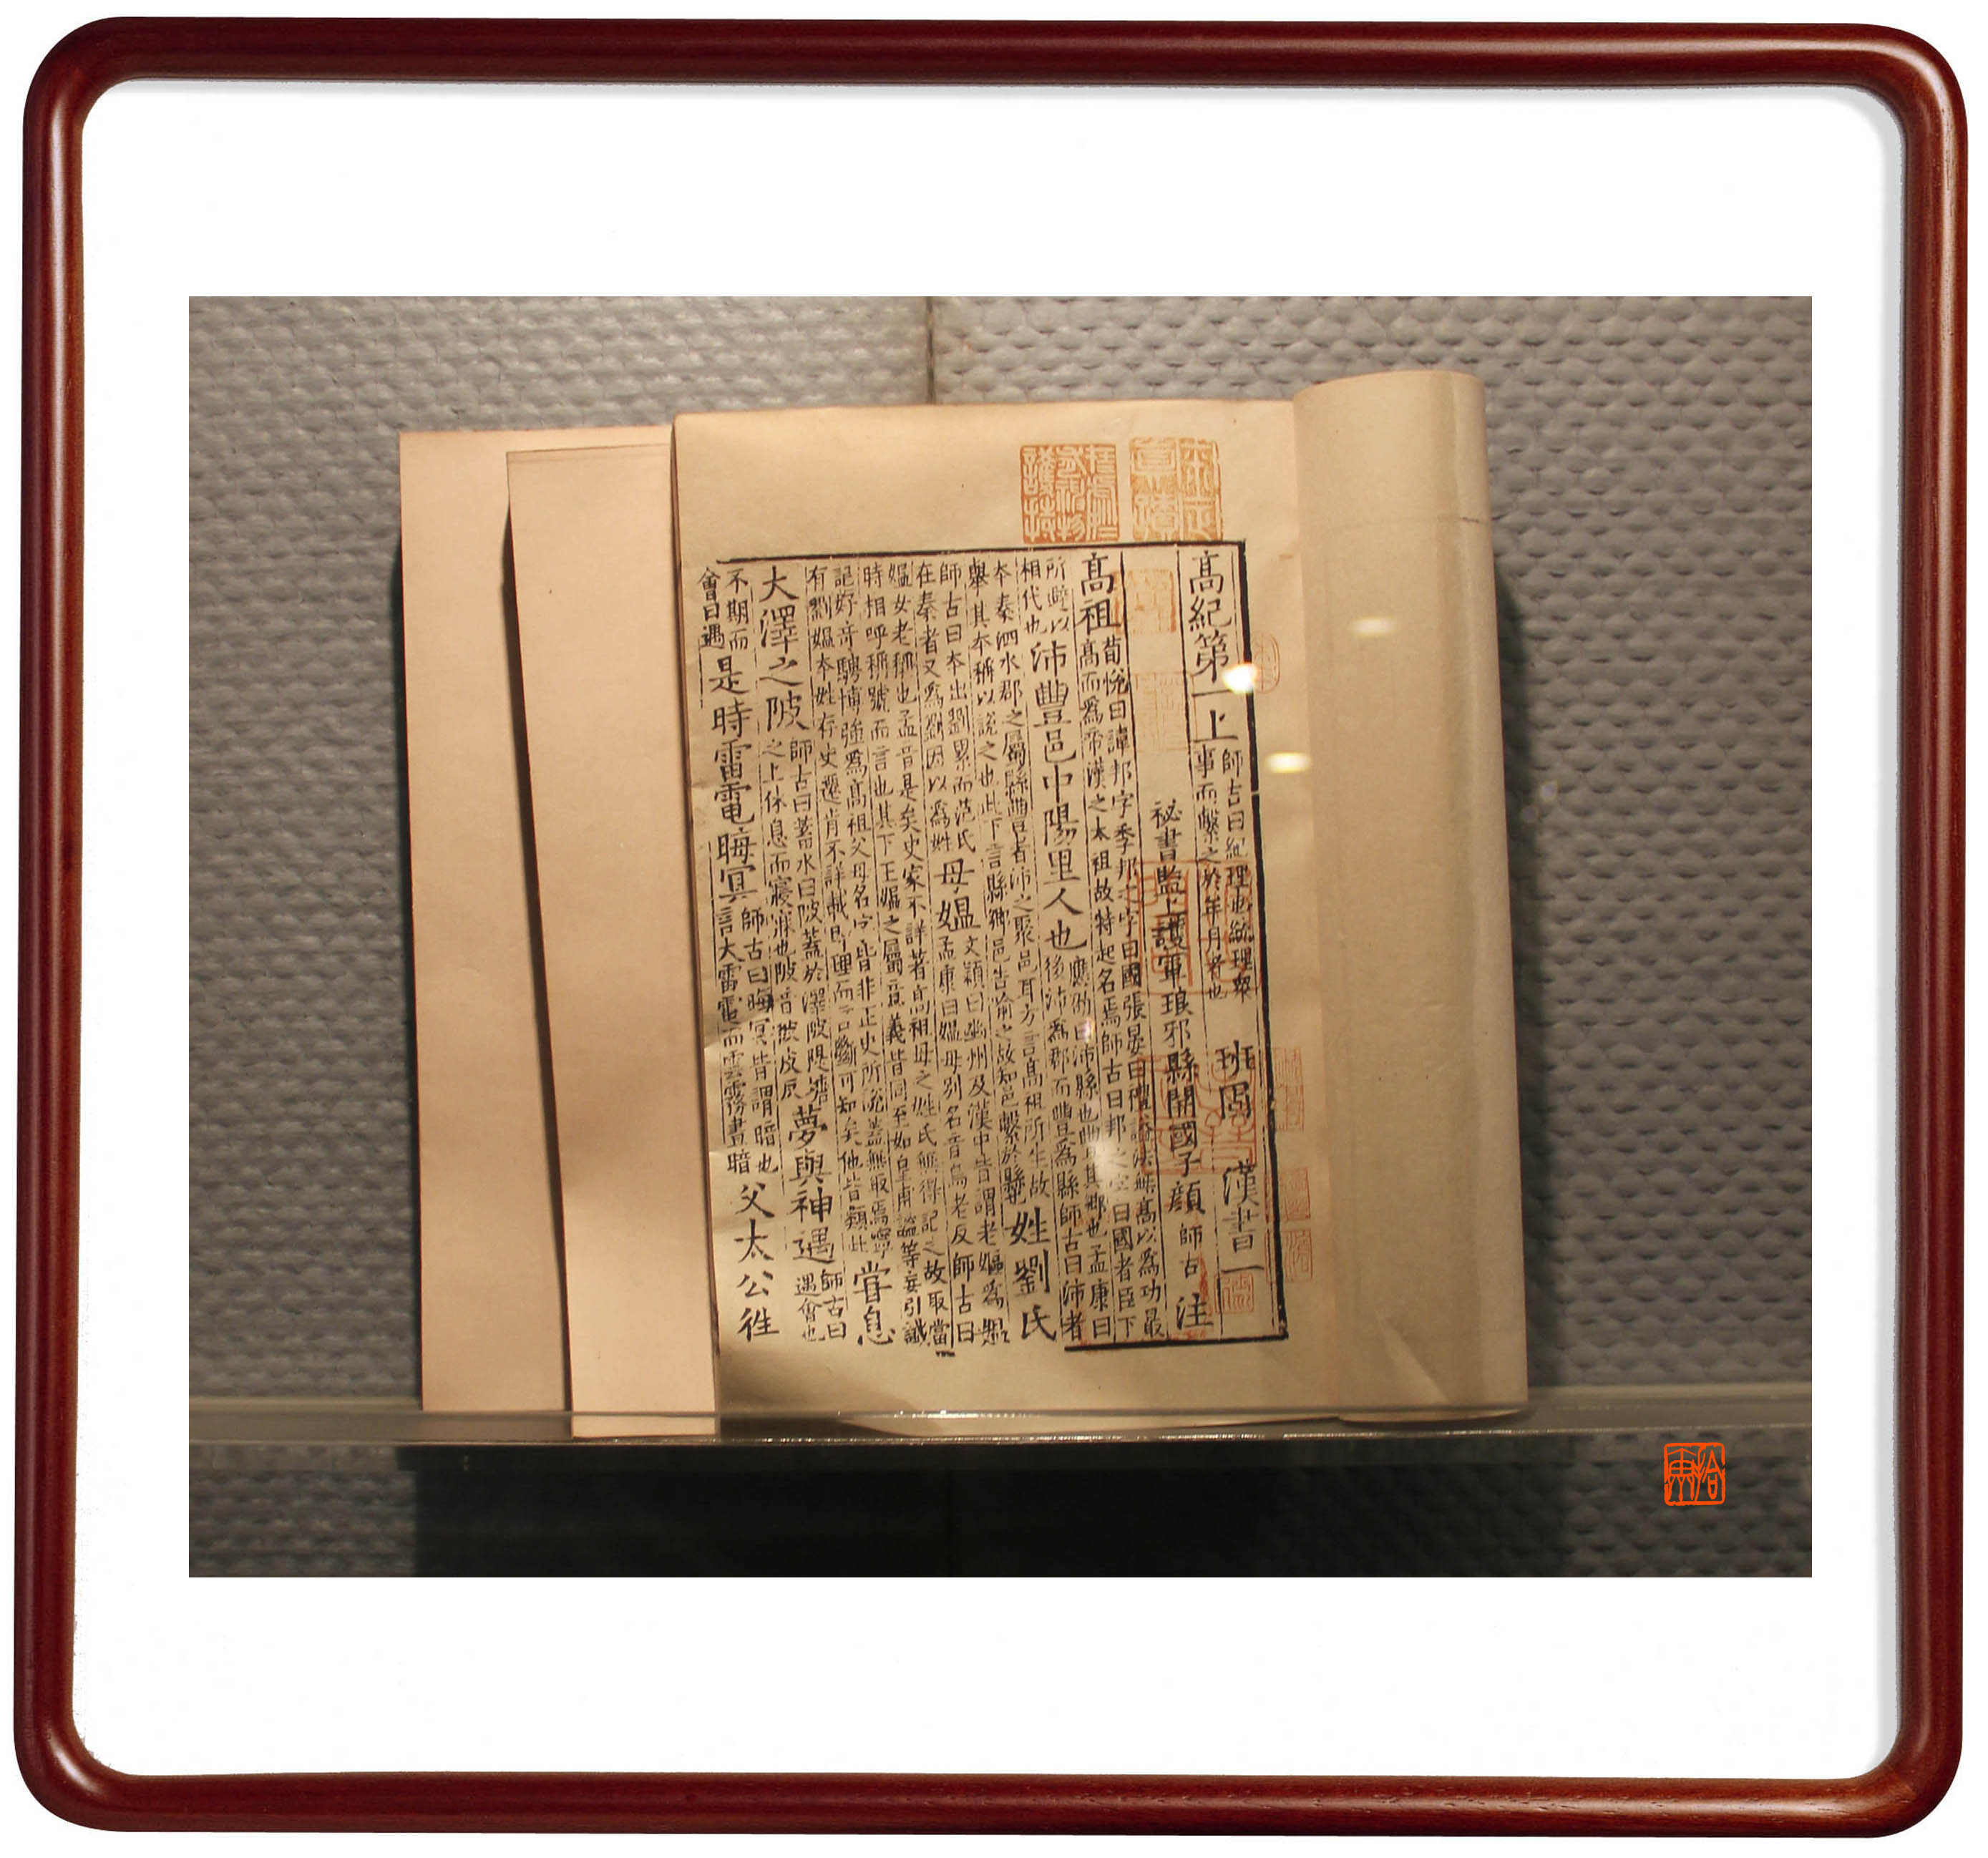 高紀第一上 師古曰紀理也統理衆事而繫之於年月者也 班固 漢書一
祕書監上護軍琅邪縣開國子顏 師古 注
高祖 荀悅曰諱邦字季邦之字曰國張晏曰禮謚法無高以為功最高而為帝漢之太祖故特起名焉師古曰邦之字曰國者臣下
所避以相代也 沛豐邑中陽里人也 應劭曰沛縣也豐其鄉也孟康曰後沛為郡而豐為縣師古曰沛者
本秦泗水郡之屬縣豐者沛之聚邑耳方言高祖所生故舉其本稱以說之也此下言縣鄉邑告喻之故知邑繫於縣也 姓劉氏
師古曰本出劉累而范氏在秦者又為劉因以為姓 母媼 文穎曰幽州及漢中皆謂老嫗為媼孟康曰媼母別名音烏老反師古曰
媼女老稱也孟音是矣史家不詳著高祖母之姓氏無得記之故取當時相呼稱號而言也其下王媼之屬意義皆同至如皇甫謐等妄引讖
記好奇騁博強為高祖父母名字皆非正史所說蓋無取焉寧有劉媼本姓存史遷肯不詳載即理而言斷可知矣他皆類此 嘗息
大澤之陂 師古曰蓄水曰陂蓋於澤陂隄塘之上休息而寢寐也陂音彼皮反 夢與神遇 師古曰遇會也
不期而會曰遇 是時雷電晦冥 師古曰晦冥皆謂暗也言大雷電而雲霧晝暗 父太公往